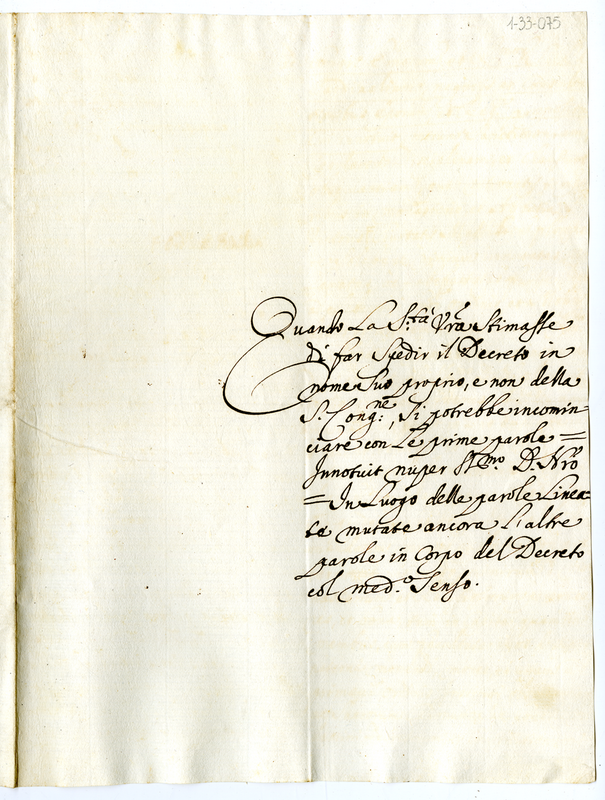 1-33-075
Quando La S.tà Vrā Stimasse
di far Spedir il Decreto in
nome Suo proprio, e non della
S. Cong.ne, Si potrebbe incomin=
ciare con Le prime parole =
Innotuit nuper SS.mo D. Nrō
= In Luogo delle parole Linea=
te mutate ancora L'altre
parole in Corpo del Decreto
col med.o Senso.